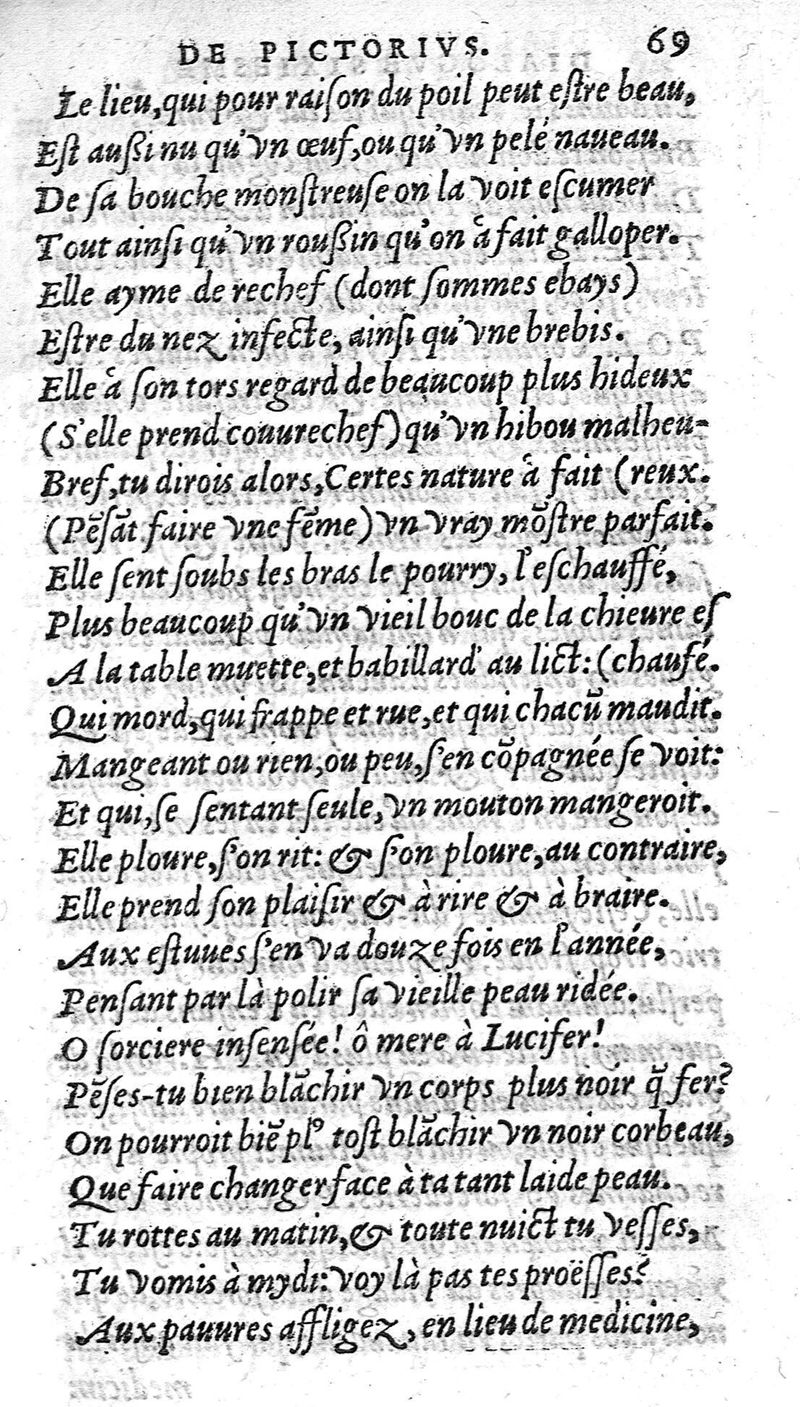 DE PICTORIVS. 69
Le lieu,qui pour raiſon du poil peut eſtre beau,
Eſt auſsi nu qu'vn œuf,ou qu'vn pelé naueau.
De ſa bouche monſtreuſe on la voit eſcumer
Tout ainſi qu'vn rouſsin qu'on à fait galloper.
Elle ayme de rechef (dont ſommes ebays)
Eſtre du nez infecte, ainſi qu'vne brebis.
Elle à ſon tors regard de beaucoup plus hideux
(S'elle prend couurechef) qu'vn hibou malheu-
Bref,tu dirois alors,Certes nature à fait (reux.
(Pẽſãt faire vne fẽme) vn vray mõſtre parfait.
Elle ſent ſoubs les bras le pourry, l'eſchauffé,
Plus beaucoup qu'vn vieil bouc de la chieure eſ
A la table muette,et babillard' au lict: (chaufé.
Qui mord,qui frappe et rue,et qui chacũ maudit.
Mangeant ou rien,ou peu,ſ'en cõpagnée ſe voit:
Et qui,ſe ſentant ſeule,vn mouton mangeroit.
Elle ploure,ſ'on rit: & ſ'on ploure,au contraire,
Elle prend ſon plaiſir & à rire & à braire.
Aux eſtuues ſ'en va douze fois en l'année,
Penſant par là polir ſa vieille peau ridée.
O ſorciere inſenſée! ô mere à Lucifer!
Pẽſes-tu bien blãchir vn corps plus noir q̃ fer?
On pourroit biẽ plꝰ toſt blãchir vn noir corbeau,
Que faire changer face à ta tant laide peau.
Tu rottes au matin,& toute nuict tu veſſes,
Tu vomis à mydi:voy là pas tes proëſſes?
Aux pauures affligez, en lieu de medicine,